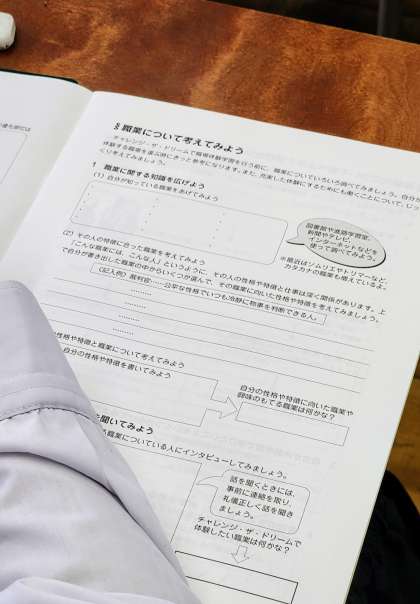 職業について考えてみよう
チャレンジ・ザ・ドリームで職場体験学習を行う前に、職業についていろいろ調べてみましょう。自分が
体験する職場を選ぶ時にきっと参考になります。また、充実した体験にするためにも働くことについて、じっ
くり考えてみましょう。
1 職業に関する知識を広げよう
(1) 自分が知っている職業をあげてみよう
図書館や進路学習室、
新聞やテレビ、
インターネットなどを
使って調べてみよう。
※最近はソムリエやトリマーなど、
カタカナの職業も増えているよ。
(2) その人の特徴に合った職業を考えてみよう
「こんな職業には、こんな人」というように、その人の性格や特徴と仕事は深く関係があります。上
で自分が書き出した職業の中からいくつか選んで、その職業に向いた性格や特徴を考えてみましょう。
(記入例) 裁判官……公平な性格でいつも冷静に物事を判断できる人。
性格や特徴と職業について考えてみよう
自分の性格や特徴を書いてみよう
自分の性格や特徴に向いた職業や
興味のもてる職業は何かな?
を聞いてみよう
職業についている人にインタビューしてみましょう。
話を聞くときには、
事前に連絡を取り、
礼儀正しく話を聞き
ましょう。
チャレンジ・ザ・ドリームで
体験したい職業は何かな?